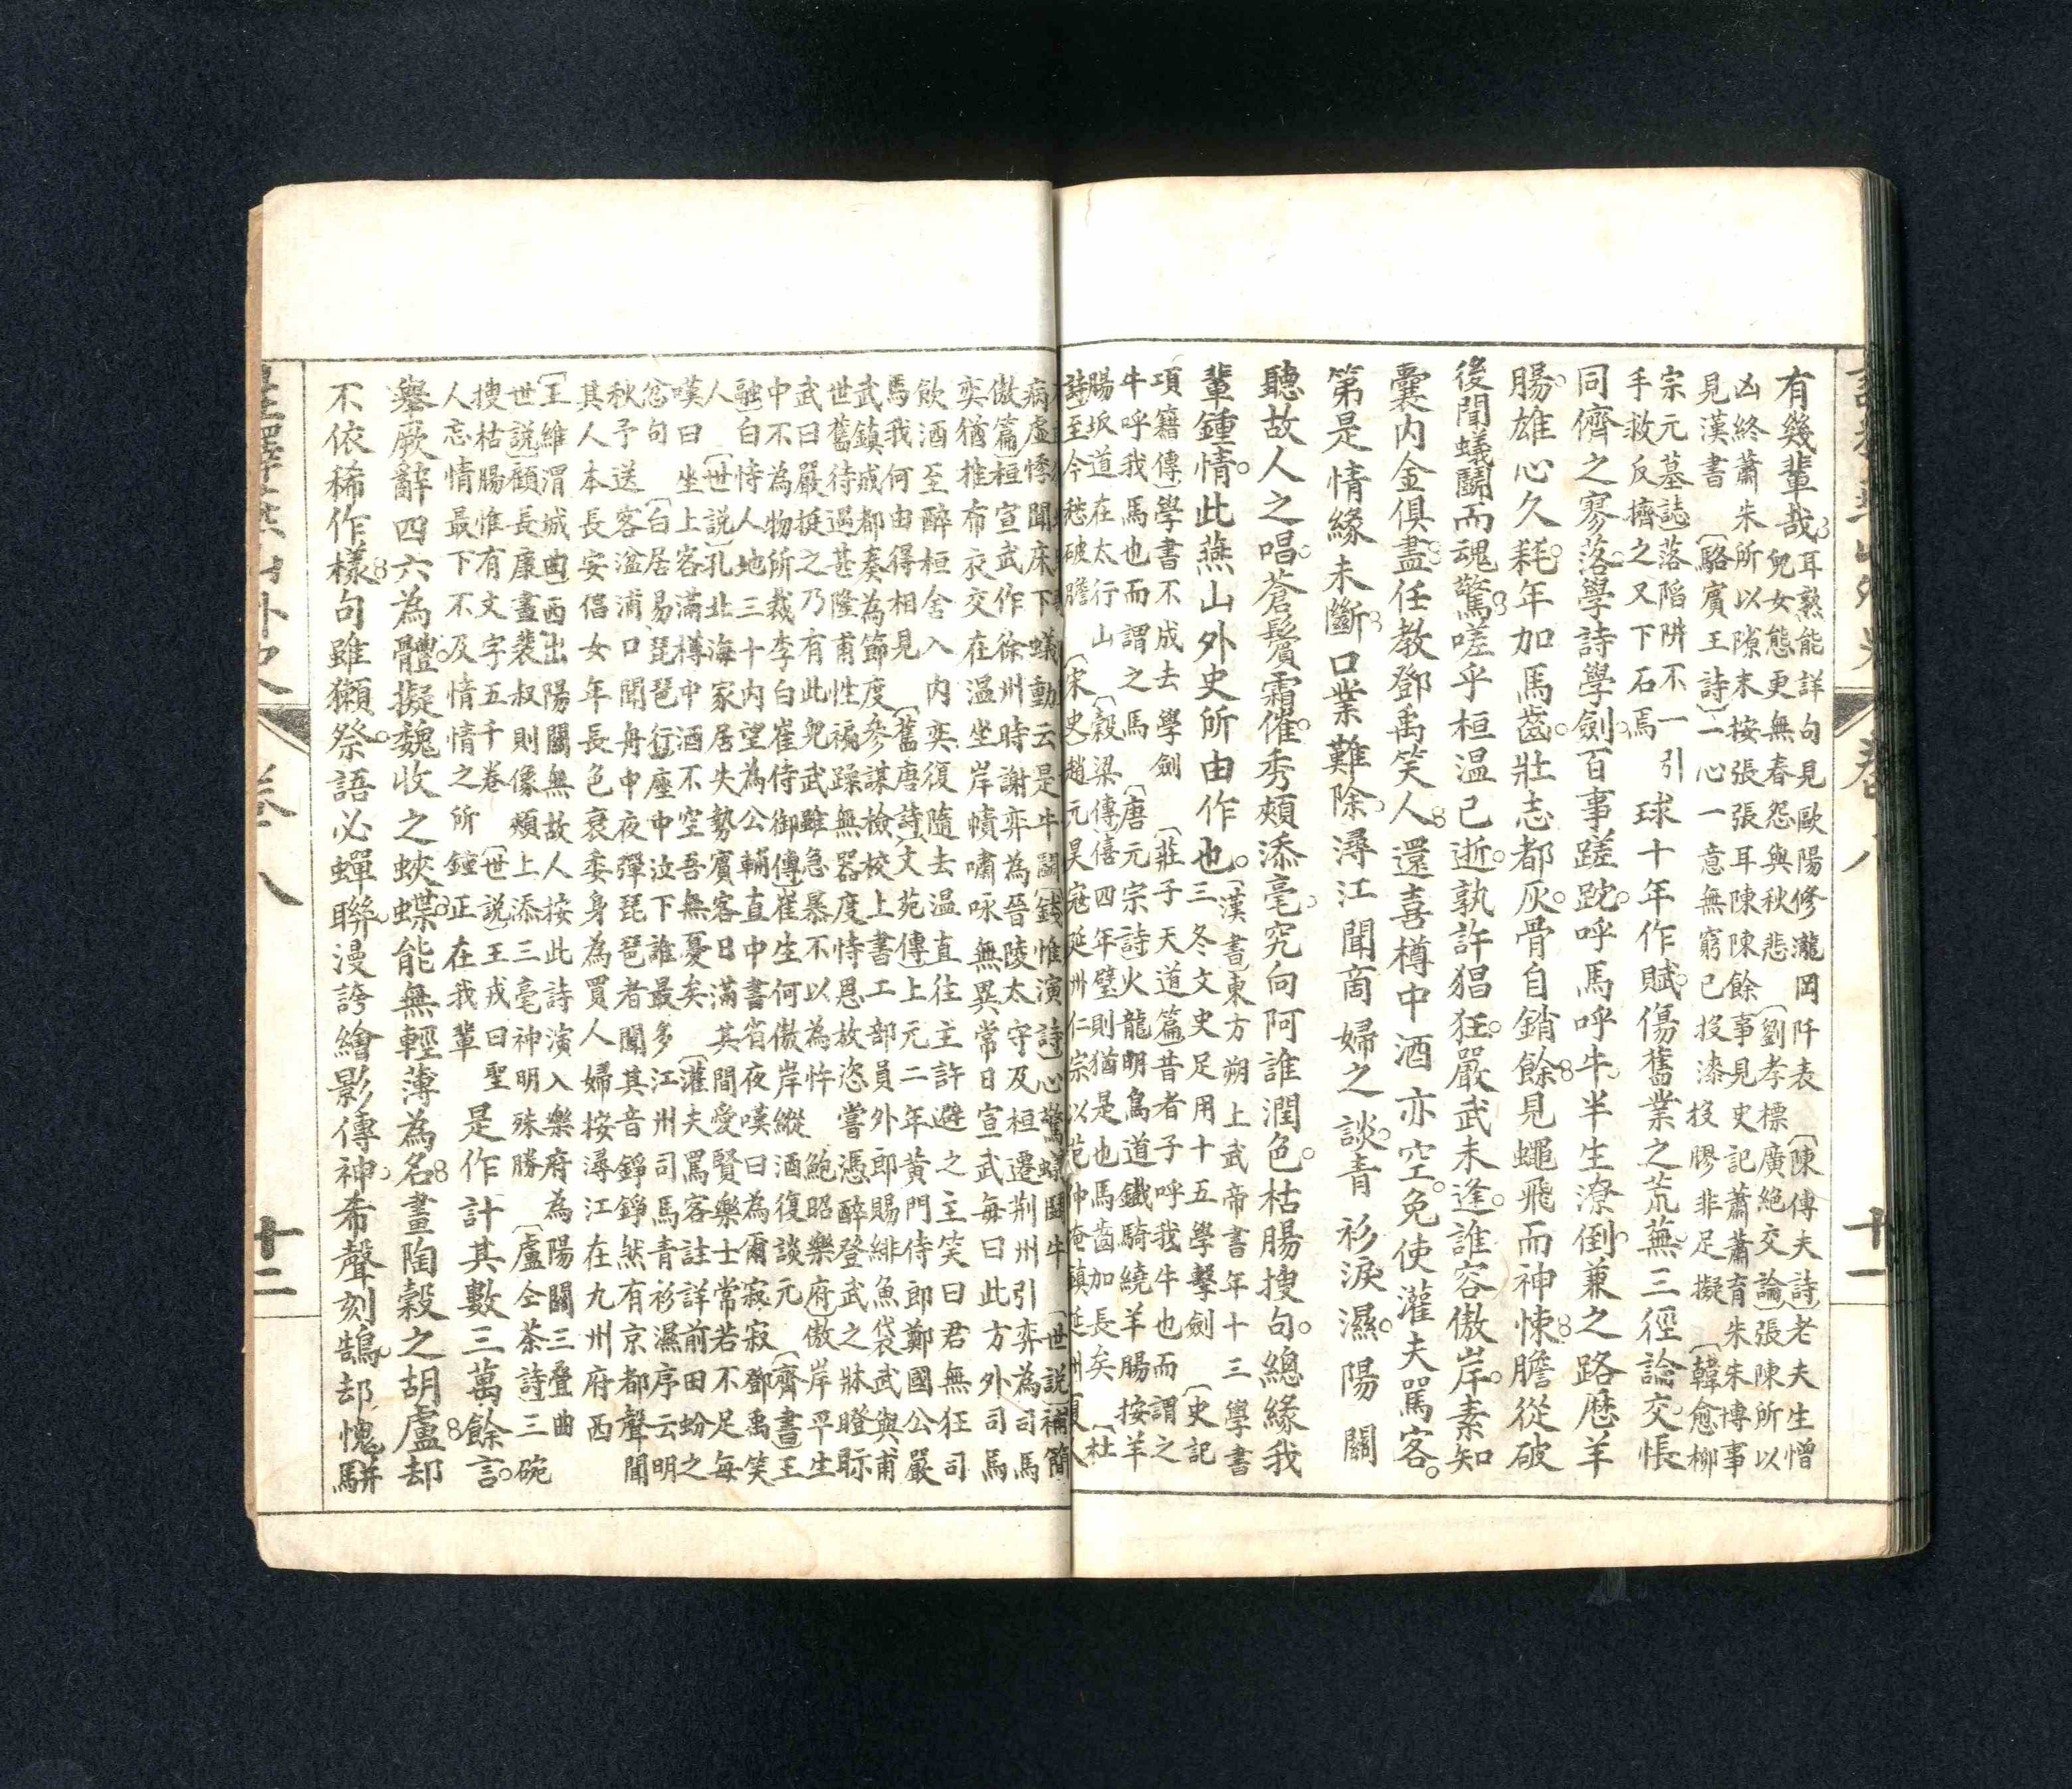 卷八
十一
有幾輩哉
耳熟能詳句見歐陽修瀧岡阡表〔陳傅夫詩〕老夫生憎
兒女態更無春怨與秋悲〔劉孝標廣絕交論〕張陳所以
凶終蕭朱所以隙末按張張耳陳陳餘事見史記蕭蕭育朱朱博事
見漢書〔駱賓王詩〕一心一意無窮已投漆投膠非足擬〔韓愈柳
宗元墓誌〕落陷阱不一引
手救反擠之又下石焉
球十年作賦傷舊業之荒蕪三徑論交悵
同儕之寥落學詩學劍百事蹉跎呼馬呼牛半生潦倒兼之路歷羊
腸雄心久耗年加馬齒壯志都灰骨自銷餘見蠅飛而神悚膽從破
後聞蟻鬭而魂驚嗟乎桓温已逝孰許猖狂嚴武未逢誰容傲岸素知
囊內金俱盡任教鄧禹笑人還喜樽中酒亦空免使灌夫罵客
第是情緣未斷口業難除潯江聞商婦之談青衫淚濕陽關
聽故人之唱蒼鬢霜催秀頰添毫究向阿誰潤色枯腸搜句總緣我
輩鍾情此燕山外史所由作也
〔漢書〕東方朔上武帝書年十三學書
三冬文史足用十五學擊劍〔史記
項籍傳〕學書不成去學劍〔莊子天道篇〕昔者子呼我牛也而謂之
牛呼我馬也而謂之馬〔唐元宗詩〕火龍明鳥道鐵騎繞羊腸按羊
腸坂道在太行山〔穀梁傳〕僖四年璧則猶是也馬齒加長矣〔杜
詩〕至今愁破膽〔宋史〕趙元昊寇延州仁宗以范仲淹鎮延州夏人
病虛悸聞床下蟻動云是牛鬭〔錢惟演詩〕心驚蟻鬭牛〔世說補簡
傲篇〕桓宣武作徐州時謝弈為晉陵太守及桓遷荊州引弈為司馬
奕猶推布衣交在温坐岸幘嘯咏無異常日宣武每曰此方外司馬
飲酒至醉桓舍入內奕復隨去温直往主許避之主笑曰君無狂司
馬我何由得相見〔舊唐詩文苑傳〕上元二年黃門侍郎鄭國公嚴
武鎮成都奏為節度參謀檢校上書工部員外郎賜緋魚袋武與甫
世舊待遇甚隆甫性褊躁無器度恃恩放恣嘗憑醉登武之牀瞪眎
武曰嚴挺之乃有此兒武雖急暴不以為忤〔鮑昭樂府〕傲岸平生
中不為物所裁李白崔侍御傳崔生何傲岸縱酒復談元〔齊書〕王
融自恃人地三十內望為公輔直中書省夜嘆曰為爾寂寂鄧禹笑
人〔世說〕孔北海家居失勢賓客日滿其門愛賢樂士常若不足每
嘆曰坐上客滿樽中酒不空吾無憂矣〔灌夫罵客註詳前田蚡之
忿句〔白居易琵琶行〕座中泣下誰最多江州司馬青衫濕序云明
秋予送客湓浦口聞舟中夜彈琵琶者聞其音錚錚然有京都聲聞
其人本長安倡女年長色衰委身為買人婦按潯江在九州府西
〔王維渭城曲〕西出陽關無故人按此詩演入樂府為陽關三疊曲
世說〕顧長康畫裴叔則像頰上添三毫神明殊勝〔盧仝茶詩〕三碗
搜枯腸惟有文字五千卷〔世說〕王戎曰聖
人忘情最下不及情情之所鍾正在我輩
是作計其數三萬餘言
舉厥辭四六為體擬魏收之蛺蝶能無輕薄為名畫陶穀之胡盧却
不依稀作樣句雖獺祭語必蟬聯漫誇繪影傳神希聲刻鵠却愧駢
卷八
十二